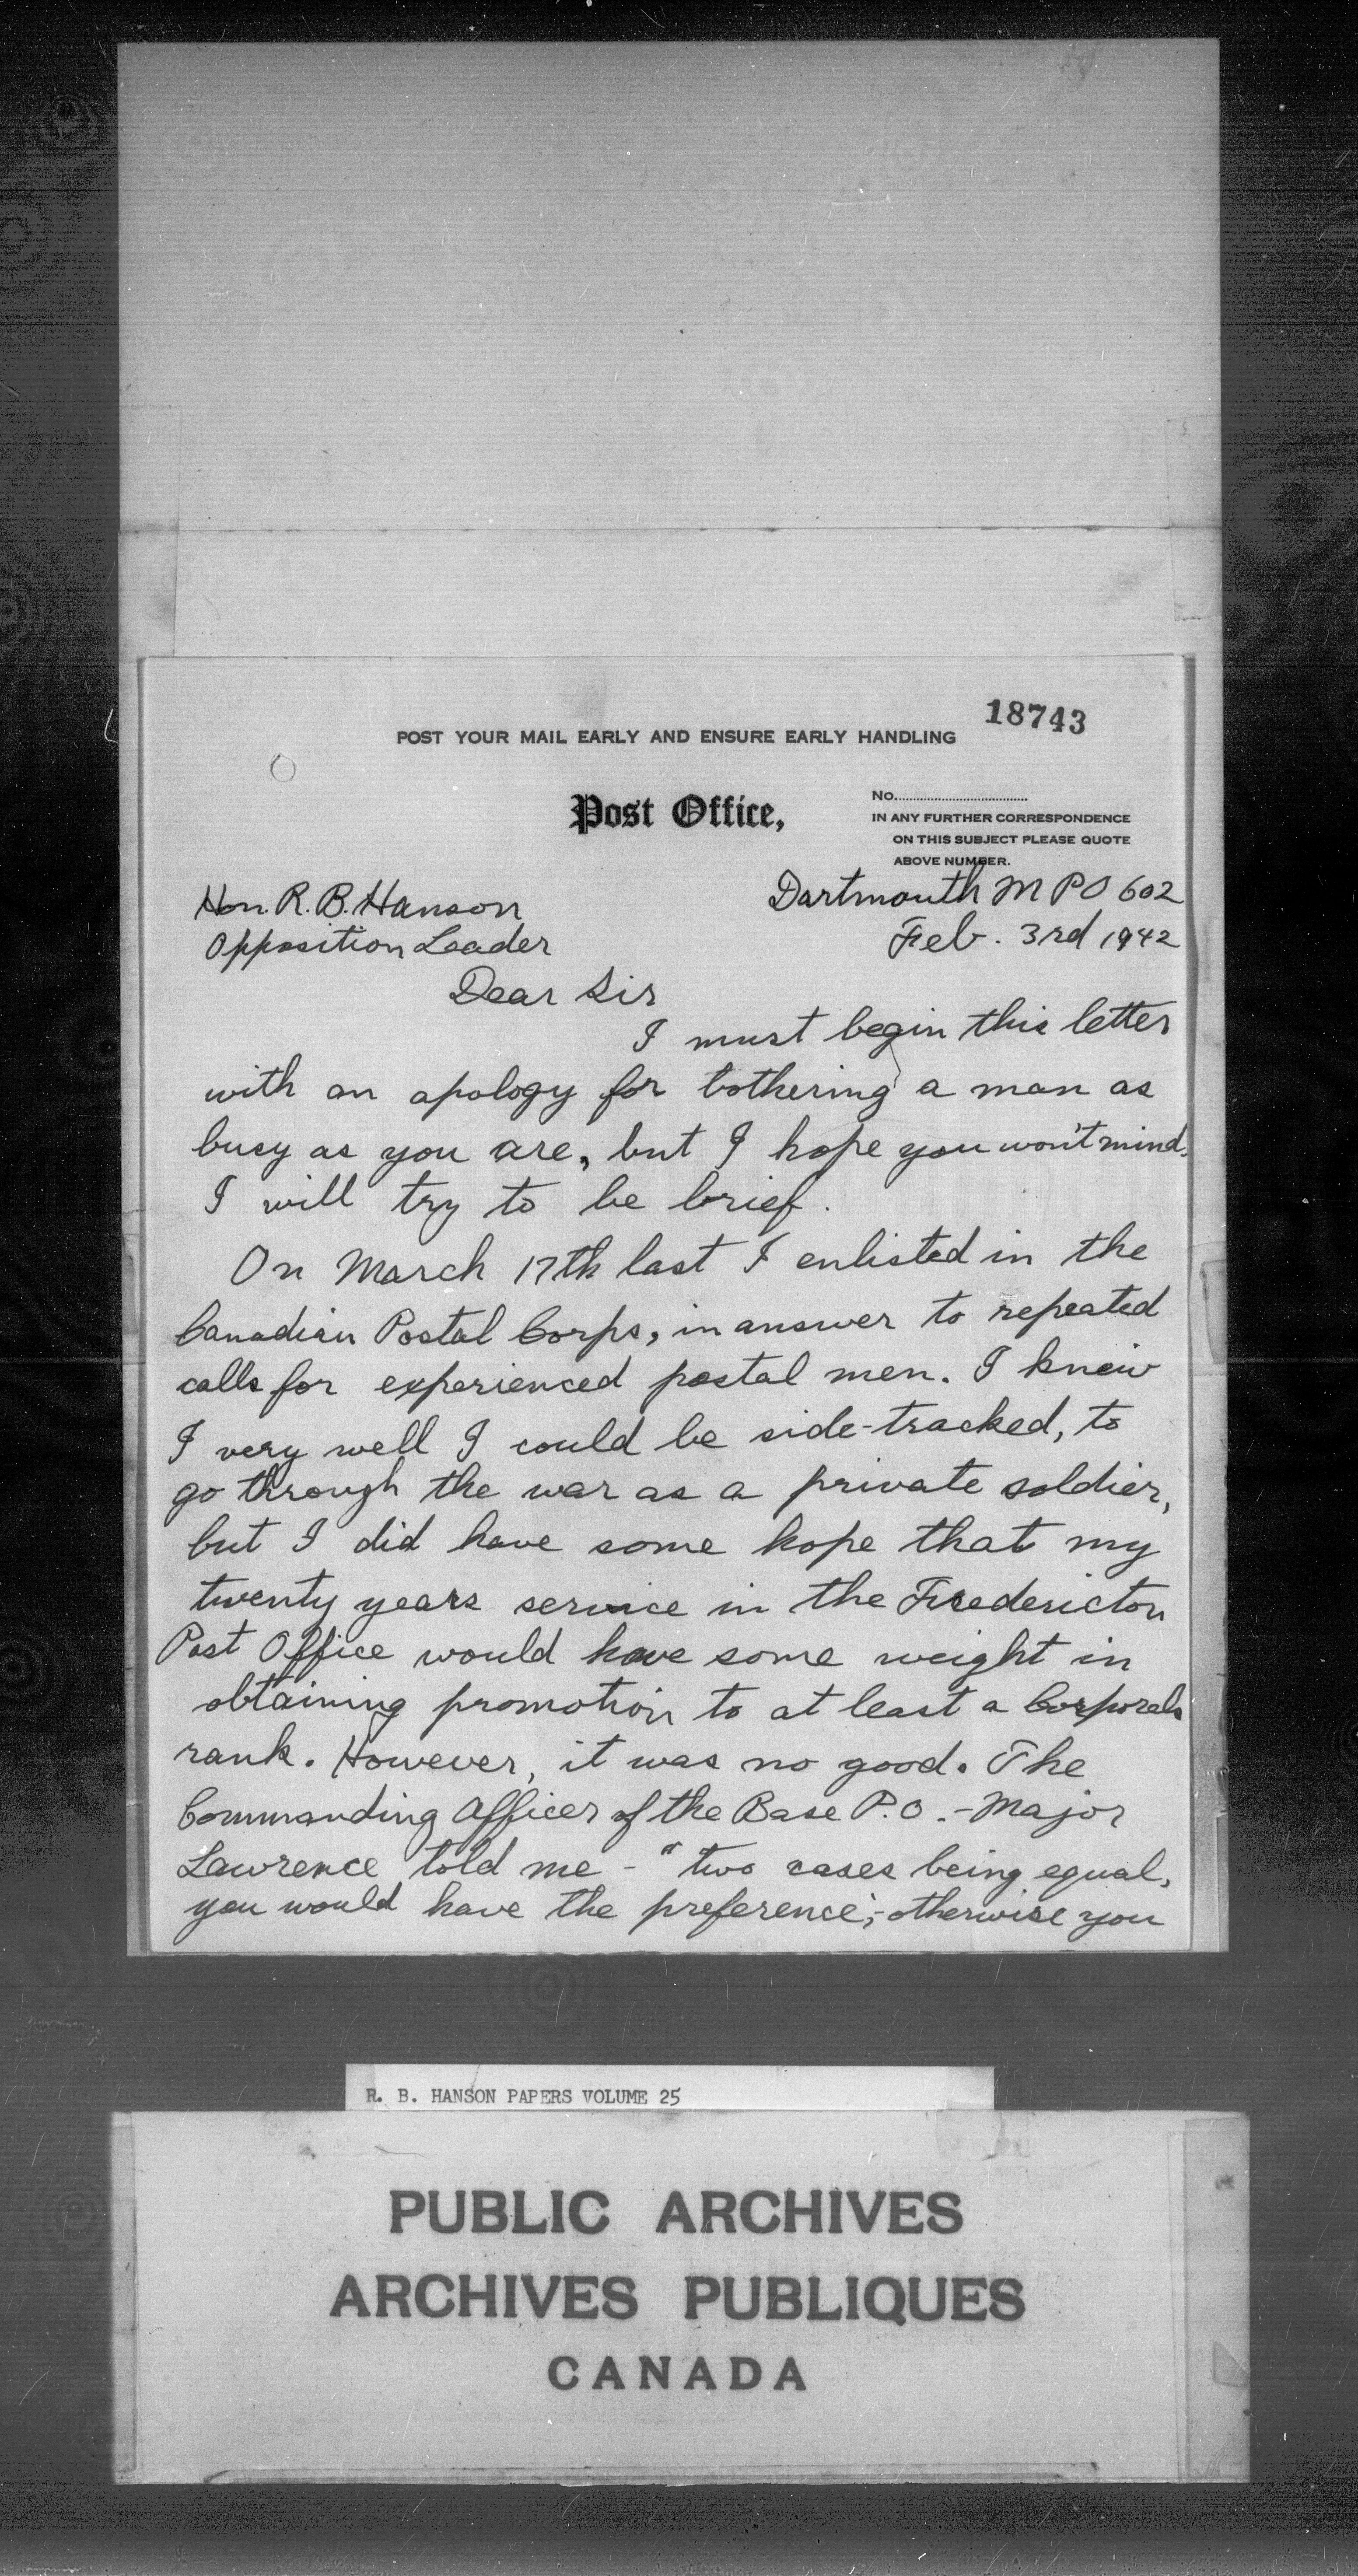 18743
POST YOUR MAIL EARLY AND ENSURE EARLY HANDLING
Post Office,
No.
IN ANY FURTHER CORRESPONDENCE
ON THIS SUBJECT PLEASE QUOTE
ABOVE NUMBER.
Dartmouth M P O 602
Feb. 3rd 1942
Hon. R. B. Hanson
Opposition Leader
Dear Sir
I must begin this letter
with an apology for bothering a man as
busy as you are, but I hope you won't mind.
I will try to be brief.
On March 17th last I enlisted in the
Canadian Postal Corps, in answer to repeated
calls for experienced postal men. I knew
I very well I could be side-tracked, to
go through the war as a private soldier,
but I did have some hope that my
twenty years service in the Fredericton
Post Office would have some weight in
obtaining promotion to at least a Corporals
rank. However, it was no good. The
Commanding Officer of the Base P.O. - Major
Lawrence told me - "two cases being equal,
you would have the preference", - otherwise you
R. B. HANSON PAPERS VOLUME 25
PUBLIC ARCHIVES
ARCHIVES PUBLIQUES
CANADA